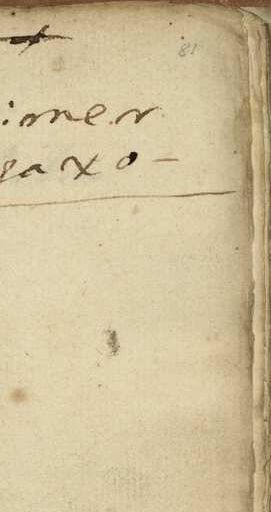 81
imer
gaxo-